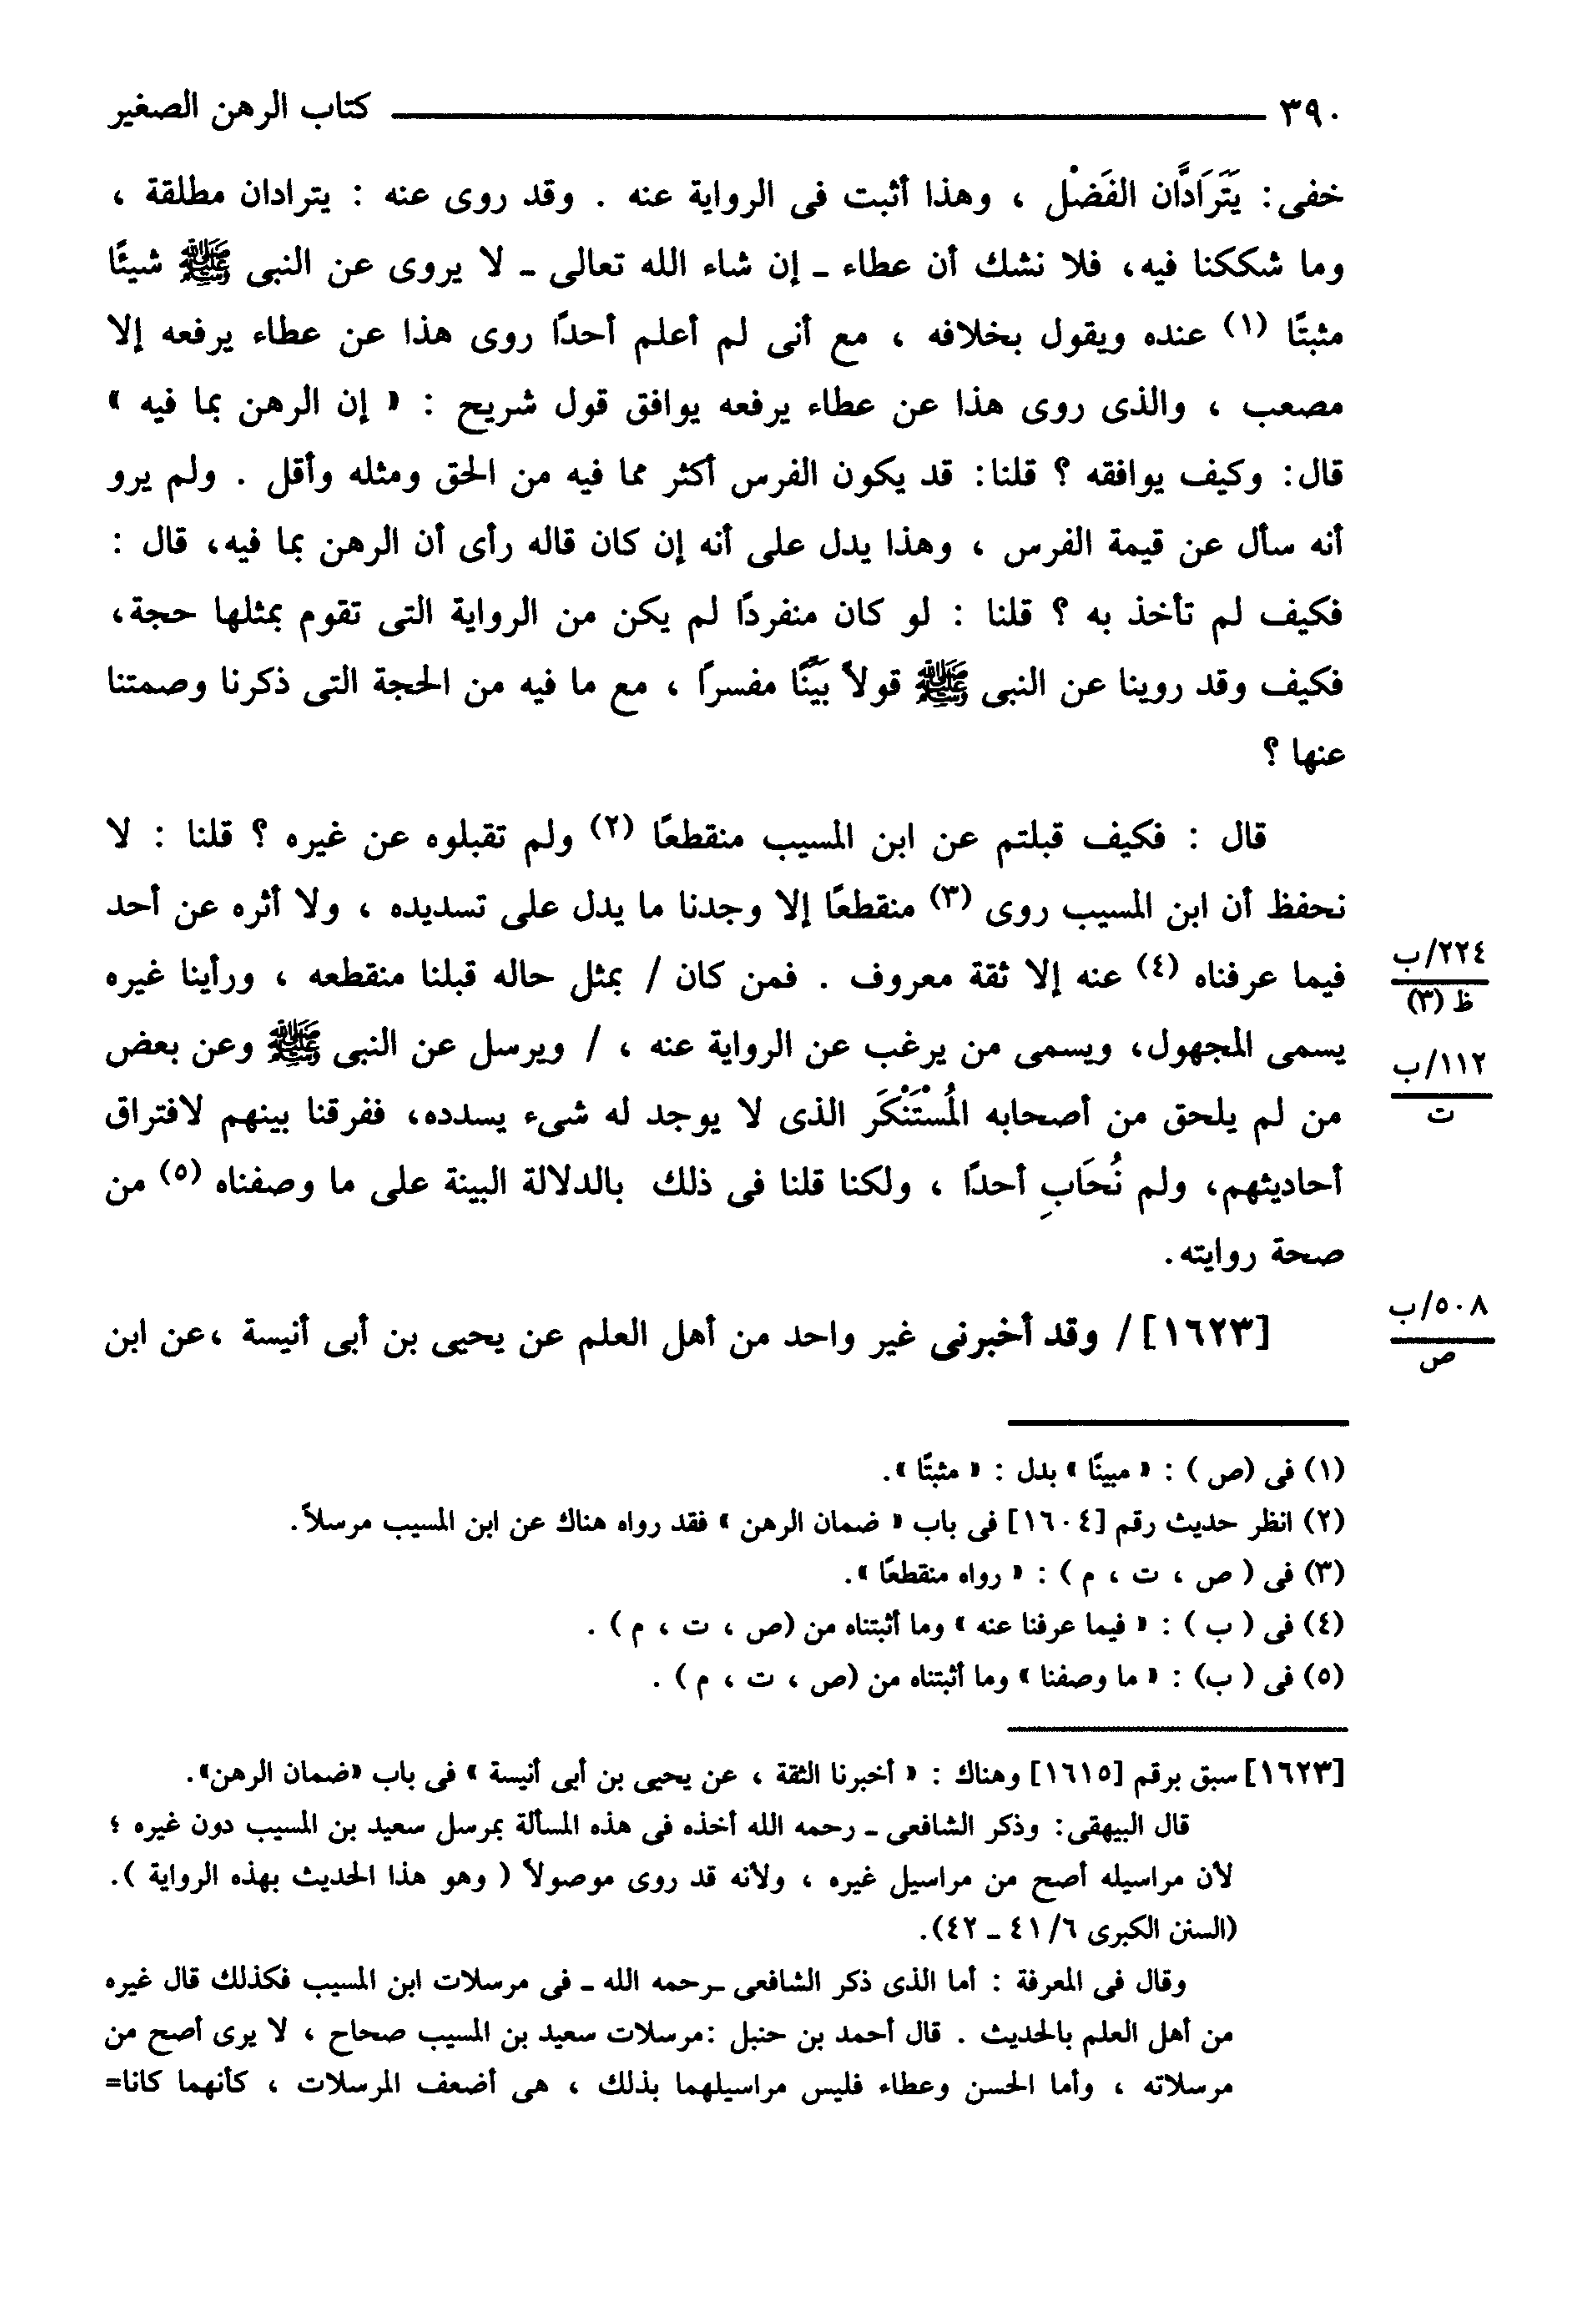 ٣٩٠ ــــــــــــــــــــ كتاب الرهن الصغير
خفى: يَتَرَادَّان الفَضْل ، وهذا أثبت فى الرواية عنه . وقد روى عنه : يترادان مطلقة ،
وما شككنا فيه، فلا نشك أن عطاء ـ إن شاء الله تعالى ـ لا يروى عن النبى ﷺ شيئًا
مثبتًا (١) عنده ويقول بخلافه ، مع أنى لم أعلم أحدًا روى هذا عن عطاء يرفعه إلا
مصعب ، والذى روى هذا عن عطاء يرفعه يوافق قول شريح : « إن الرهن بما فيه »
قال: وكيف يوافقه ؟ قلنا: قد يكون الفرس أكثر مما فيه من الحق ومثله وأقل . ولم يرو
أنه سأل عن قيمة الفرس ، وهذا يدل على أنه إن كان قاله رأى أن الرهن بما فيه، قال :
فكيف لم تأخذ به ؟ قلنا : لو كان منفردًا لم يكن من الرواية التى تقوم بمثلها حجة،
فكيف وقد روينا عن النبى ﷺ قولاً بَيِّنًا مفسرًا ، مع ما فيه من الحجة التى ذكرنا وصمتنا
عنها ؟
قال : فكيف قبلتم عن ابن المسيب منقطعًا (٢) ولم تقبلوه عن غيره ؟ قلنا : لا
نحفظ أن ابن المسيب روى (٣) منقطعًا إلا وجدنا ما يدل على تسديده ، ولا أثره عن أحد
فيما عرفناه (٤) عنه إلا ثقة معروف . فمن كان / بمثل حاله قبلنا منقطعه ، ورأينا غيره
٢٢٤/ب
ظ (٣)
يسمى المجهول، ويسمى من يرغب عن الرواية عنه ، / ويرسل عن النبى ﷺ وعن بعض
١١٢/ب
ت
من لم يلحق من أصحابه المُسْتَنْكَر الذى لا يوجد له شىء يسدده، ففرقنا بينهم لافتراق
أحاديثهم، ولم نُحَابِ أحدًا ، ولكنا قلنا فى ذلك بالدلالة البينة على ما وصفناه (٥) من
صحة روايته.
[١٦٢٣] / وقد أخبرنى غير واحد من أهل العلم عن يحيى بن أبى أنيسة ،عن ابن
٥٠٨/ب
ص
(١) فى (ص ) : « مبينًا » بدل : « مثبتًا ».
(٢) انظر حديث رقم [١٦٠٤] فى باب « ضمان الرهن » فقد رواه هناك عن ابن المسيب مرسلاً.
(٣) فى ( ص ، ت ، م ) : « رواه منقطعًا ».
(٤) فى ( ب ) : « فيما عرفنا عنه » وما أثبتناه من (ص ، ت ، م ) .
(٥) فى ( ب) : « ما وصفنا » وما أثبتناه من (ص ، ت ، م ) .
[١٦٢٣] سبق برقم [١٦١٥] وهناك : « أخبرنا الثقة ، عن يحيى بن أبى أنيسة » فى باب «ضمان الرهن».
قال البيهقى: وذكر الشافعى ـ رحمه الله أخذه فى هذه المسألة بمرسل سعيد بن المسيب دون غيره ؛
لأن مراسيله أصح من مراسيل غيره ، ولأنه قد روى موصولاً ( وهو هذا الحديث بهذه الرواية ).
(السنن الكبرى ٦/ ٤١ ـ ٤٢).
وقال فى المعرفة : أما الذى ذكر الشافعى ـرحمه الله ـ فى مرسلات ابن المسيب فكذلك قال غيره
من أهل العلم بالحديث . قال أحمد بن حنبل :مرسلات سعيد بن المسيب صحاح ، لا يرى أصح من
مرسلاته ، وأما الحسن وعطاء فليس مراسيلهما بذلك ، هى أضعف المرسلات ، كأنهما كانا=